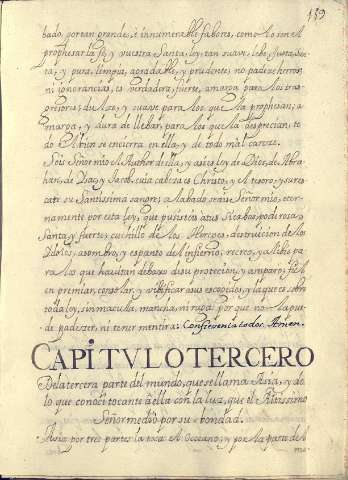 159
bado, por tan grande, e innumerable fabores, como lo son el
prophesar la fe, y vuestra Santa ley, tan suave, leba, Justa, Sen-
ta, y pura, limpia, agradable, y prudente, no padeze herror,
ni ignorancias, es verdadera, fuerte, amarga para los tras-
gresores; dulze, y suave para los que la prophesan, a
marga, y dura de llebar, para los que la desprecian, to-
do el bien se encierra en ella, y de todo mal careze.
Sois Señor mio el Author de ella, y assi es ley de Dios, de Abra-
han, de Isac, y Jacob, cuia cabeza es Christo, y el tesoro, y su res-
cate su Santissima sangre, alabado seais Señor mio, eter-
namente por esta ley, que pusisteis a tus Siervos, poderosa,
Santa, y fuerte, cuchillo de los Herejes, destruicion de los
Idolos, asombro, y espanto del infierno, recreo, y alibio pa-
ra los que havitan debaxo de su proteccion, y amparo, fiel
en premiar, consolar, y vibificar a sus escojidos, y la que es sobre
toda ley, sin macula, mancha, ni ruga, por que no la pue-
de padezer, ni tener mentira: Confiessenla todos Amen.
CAPITVLO TERCERO
De la tercera parte del mundo, que se llama Asia, y de
lo que conoci tocante á ella con la luz, que el Altissimo
Señor me dió por su bondad.
Asia por tres partes la toca el Occeano, y por la parte del